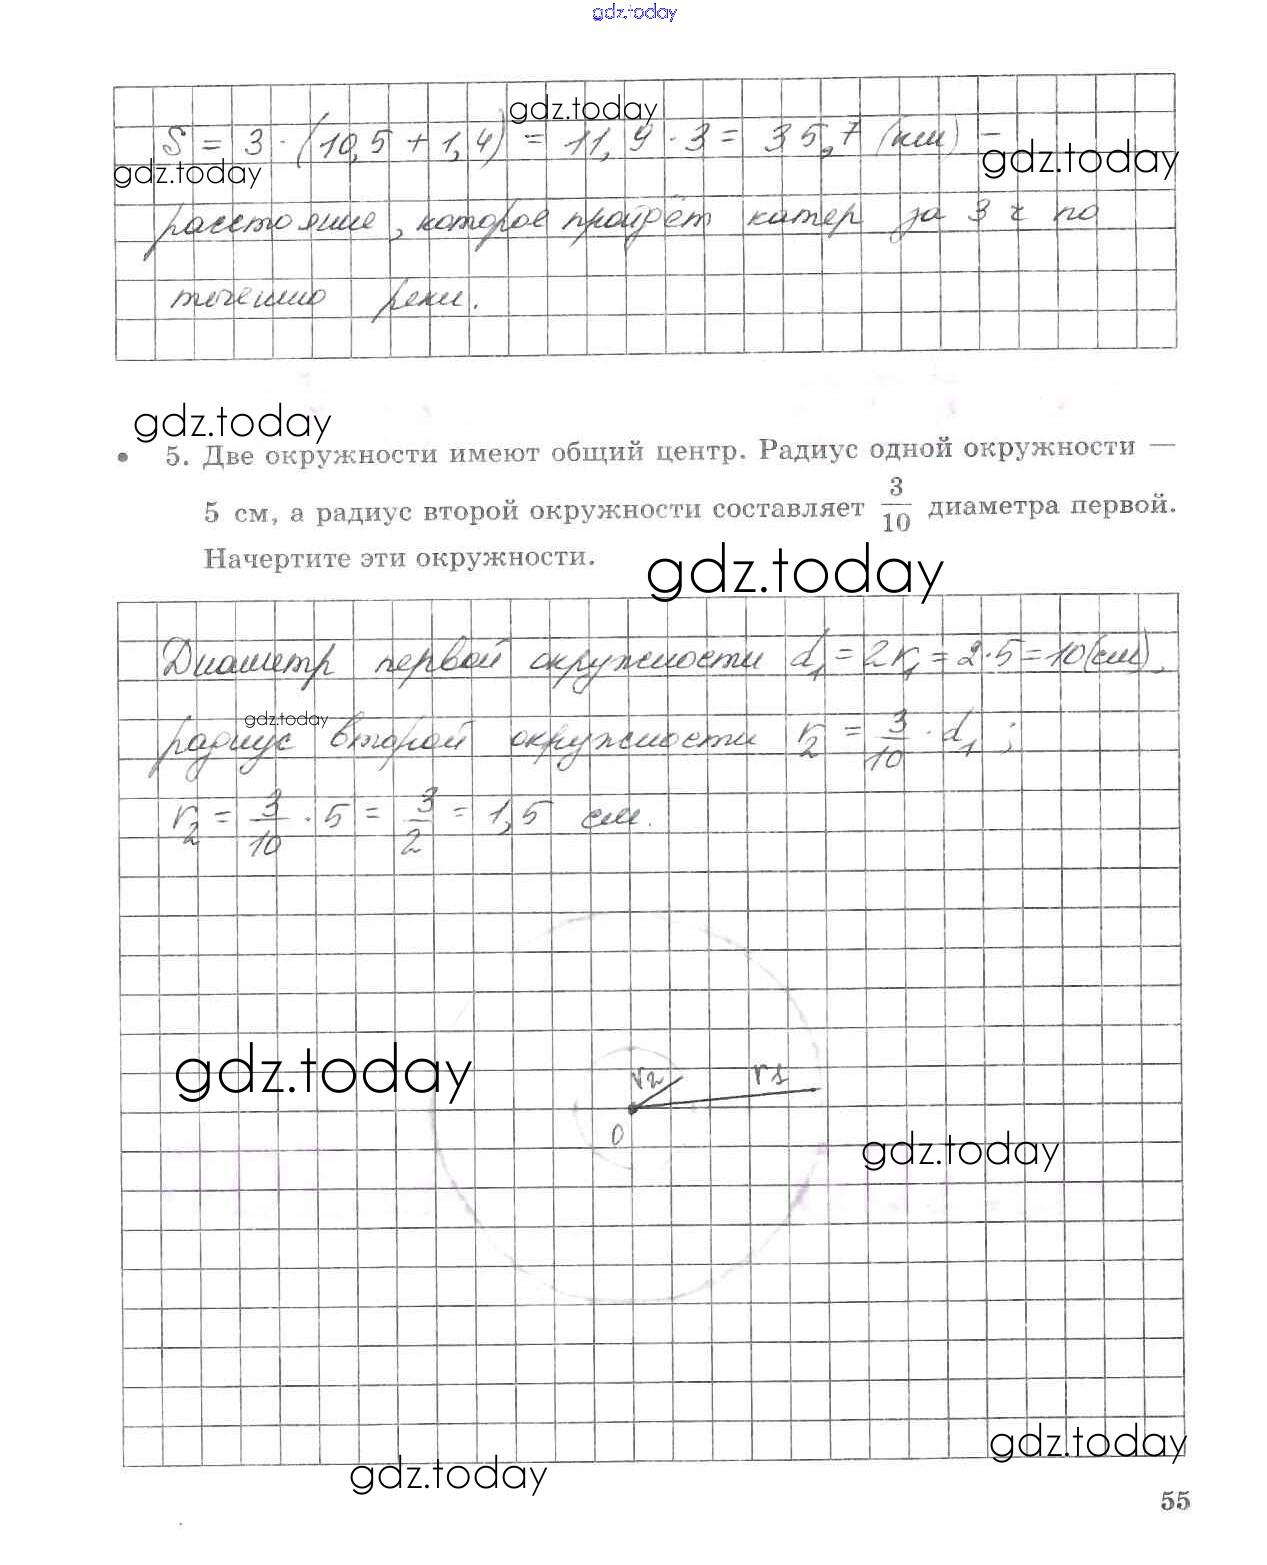 gdz.today
gdz.today
S = 3 · (10,5 + 1,4) = 11,9 · 3 = 35,7 (км) –
gdz.today
gdz.today
расстояние, которое пройдёт катер за 3 ч по
течению реки.
gdz.today
• 5. Две окружности имеют общий центр. Радиус одной окружности —
5 см, а радиус второй окружности составляет 3/10 диаметра первой.
Начертите эти окружности.
gdz.today
Диаметр первой окружности d₁ = 2r₁ = 2·5 = 10 (см),
gdz.today
радиус второй окружности r₂ = 3/10 · d₁ ;
r₂ = 3/10 · 5 = 3/2 = 1,5 см.
gdz.today
r₂ r₁
O
gdz.today
gdz.today
gdz.today
55